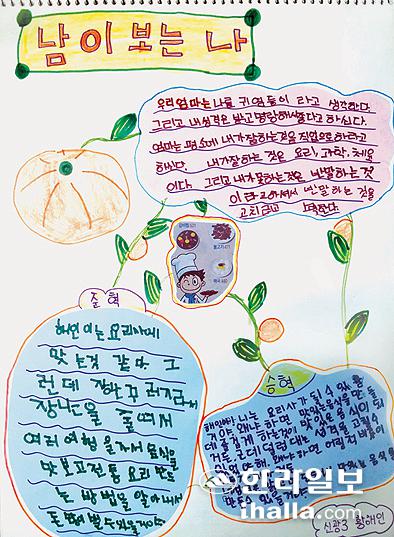 남이 보는 나
우리 엄마는 나를 귀염둥이 라고 생각한다.
그리고 내 성격은 밝고 명랑해서 좋다고 하신다.
엄마는 평소에 내가 잘하는것을 직업으로 하라고
하신다. 내가 잘하는 것은 요리, 과학, 체육
이다. 그리고 내가 못하는것은 반말하는 것
이라고 하셔서 반말 하는 것을
고치려고 노력한다.
준혁
해인이는 요리사에
맞는것 같다. 그
런데 장난꾸러기라서
장난을 줄여서
여러 여행을 가서 음식을
맛보고 전통 요리 만드
는 방법을 알아내서
승혁
해인이 나는 요리사가 될 수 있을
것 같아. 왜냐 하면 맛있는 음식을 만들
한라일보
ihalla.com
신광3 황해인